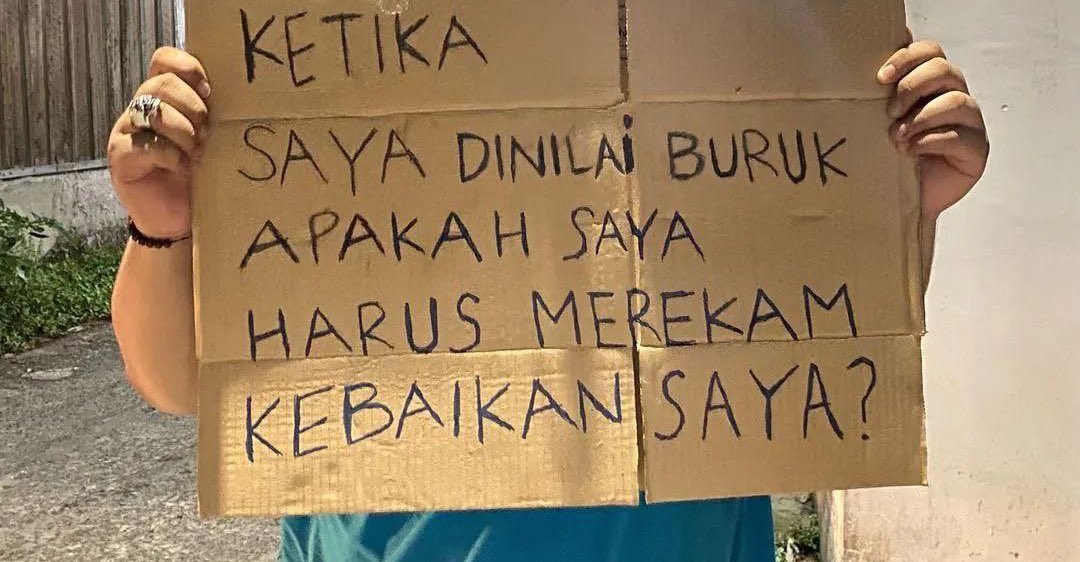 KETIKA
SAYA DINILAi BURUK
APAKAH SAYA
HARUS MEREKAM
KEBAIKAN SAYA?